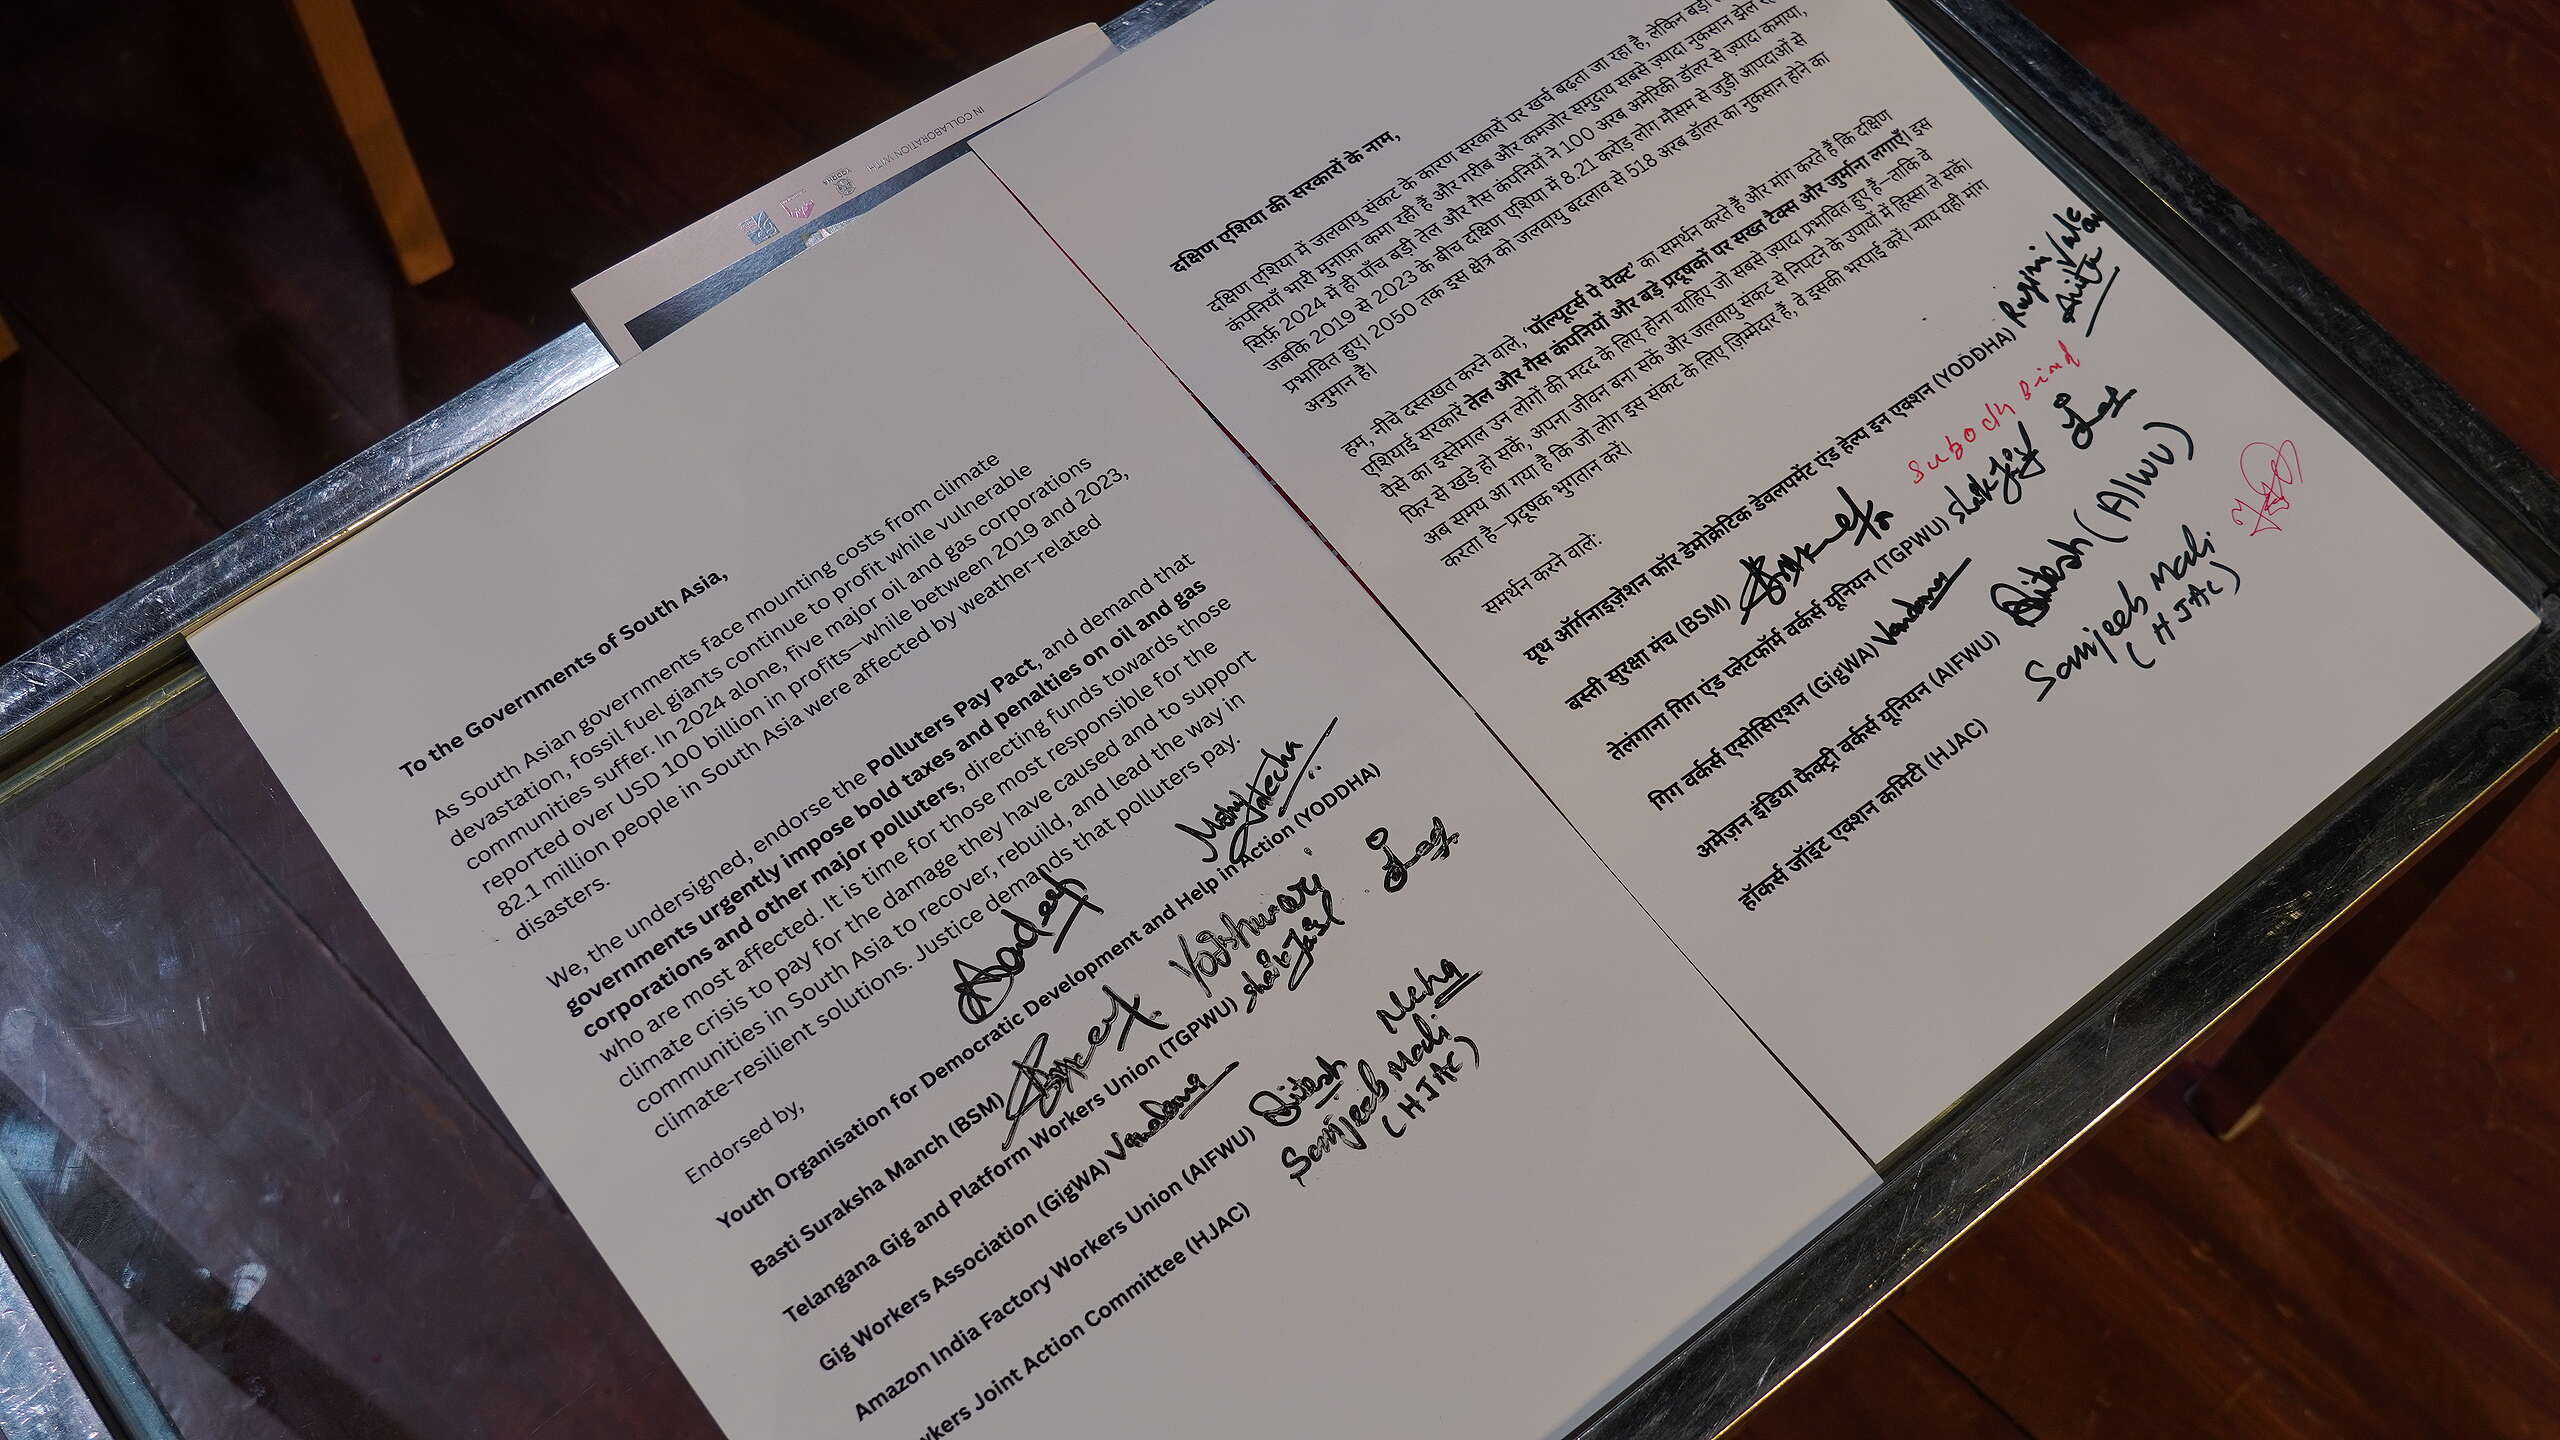 IN COLLABORATION WITH
YODDHA
To the Governments of South Asia,
As South Asian governments face mounting costs from climate
devastation, fossil fuel giants continue to profit while vulnerable
communities suffer. In 2024 alone, five major oil and gas corporations
reported over USD 100 billion in profits—while between 2019 and 2023,
82.1 million people in South Asia were affected by weather-related
disasters.
We, the undersigned, endorse the Polluters Pay Pact, and demand that
governments urgently impose bold taxes and penalties on oil and gas
corporations and other major polluters, directing funds towards those
who are most affected. It is time for those most responsible for the
climate crisis to pay for the damage they have caused and to support
communities in South Asia to recover, rebuild, and lead the way in
climate-resilient solutions. Justice demands that polluters pay.
Endorsed by,
Youth Organisation for Democratic Development and Help in Action (YODDHA)
Basti Suraksha Manch (BSM)
Yogishwari
Telangana Gig and Platform Workers Union (TGPWU)
Gig Workers Association (GigWA) Vandana
Neha
Amazon India Factory Workers Union (AIFWU) Nitesh
Sanjeeb Mali
(HJAC)
wkers Joint Action Committee (HJAC)
दक्षिण एशिया की सरकारों के नाम,
दक्षिण एशिया में जलवायु संकट के कारण सरकारों पर खर्च बढ़ता जा रहा है, लेकिन बड़ी
कंपनियाँ भारी मुनाफ़ा कमा रही हैं और गरीब और कमजोर समुदाय सबसे ज़्यादा नुकसान झेल
सिर्फ़ 2024 में ही पाँच बड़ी तेल और गैस कंपनियों ने 100 अरब अमेरिकी डॉलर से ज़्यादा कमाया,
जबकि 2019 से 2023 के बीच दक्षिण एशिया में 8.21 करोड़ लोग मौसम से जुड़ी आपदाओं से
प्रभावित हुए। 2050 तक इस क्षेत्र को जलवायु बदलाव से 518 अरब डॉलर का नुकसान होने का
अनुमान है।
हम, नीचे दस्तखत करने वाले, ‘पॉल्यूटर्स पे पैक्ट’ का समर्थन करते हैं और मांग करते हैं कि दक्षिण
एशियाई सरकारें तेल और गैस कंपनियों और बड़े प्रदूषकों पर सख्त टैक्स और जुर्माना लगाएँ। इस
पैसे का इस्तेमाल उन लोगों की मदद के लिए होना चाहिए जो सबसे ज़्यादा प्रभावित हुए हैं—ताकि वे
फिर से खड़े हो सकें, अपना जीवन बना सकें और जलवायु संकट से निपटने के उपायों में हिस्सा ले सकें।
अब समय आ गया है कि जो लोग इस संकट के लिए ज़िम्मेदार हैं, वे इसकी भरपाई करें। न्याय यही मांग
करता है—प्रदूषक भुगतान करें।
समर्थन करने वाले:
यूथ ऑर्गनाइज़ेशन फॉर डेमोक्रेटिक डेवलपमेंट एंड हेल्प इन एक्शन (YODDHA)
बस्ती सुरक्षा मंच (BSM)
Subodh Bind
तेलंगाना गिग एंड प्लेटफॉर्म वर्कर्स यूनियन (TGPWU)
गिग वर्कर्स एसोसिएशन (GigWA) Vandana
अमेज़न इंडिया फैक्ट्री वर्कर्स यूनियन (AIFWU) Nitesh (AIWU)
Sanjeeb Mali
(HJAC)
हॉकर्स जॉइंट एक्शन कमिटी (HJAC)